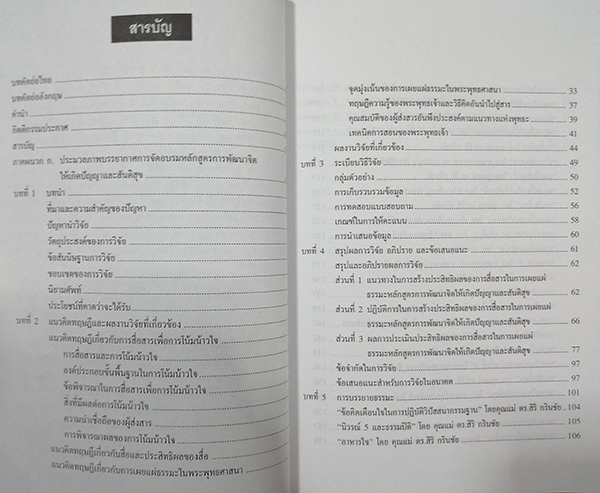 สารบัญ
บทคัดย่อไทย
บทคัดย่ออังกฤษ
คำนำ
กิตติกรรมประกาศ
สารบัญ
ภาคผนวก ก. ประมวลภาพบรรยากาศการจัดอบรมหลักสูตรการพัฒนาจิต
ให้เกิดปัญญาและสันติสุข
บทที่ 1 บทนำ
ที่มาและความสำคัญของปัญหา
ปัญหานำวิจัย
วัตถุประสงค์ของการวิจัย
ข้อสันนิษฐานการวิจัย
ขอบเขตของการวิจัย
นิยามศัพท์
ประโยชน์ที่คาดว่าจะได้รับ
บทที่ 2 แนวคิดทฤษฎีและผลงานวิจัยที่เกี่ยวข้อง
แนวคิดทฤษฎีเกี่ยวกับการสื่อสารเพื่อการโน้มน้าวใจ
การสื่อสารและการโน้มน้าวใจ
องค์ประกอบขั้นพื้นฐานในการโน้มน้าวใจ
ข้อพิจารณาในการสื่อสารเพื่อการโน้มน้าวใจ
สิ่งที่มีผลต่อการโน้มน้าวใจ
ความน่าเชื่อถือของผู้ส่งสาร
การพิจารณาผลของการโน้มน้าวใจ
แนวคิดทฤษฎีเกี่ยวกับสื่อและประสิทธิผลของสื่อ
แนวคิดทฤษฎีเกี่ยวกับการเผยแผ่ธรรมะในพระพุทธศาสนา
จุดมุ่งเน้นของการเผยแผ่ธรรมะในพระพุทธศาสนา 33
ทฤษฎีความรู้ของพระพุทธเจ้าและวิธีคิดอันนำไปสู่สาร 37
คุณสมบัติของผู้ส่งสารอันพึงประสงค์ตามแนวทางแห่งพุทธะ 39
เทคนิคการสอนของพระพุทธเจ้า 41
ผลงานวิจัยที่เกี่ยวข้อง 44
บทที่ 3 ระเบียบวิธีวิจัย 49
กลุ่มตัวอย่าง 50
การเก็บรวบรวมข้อมูล 52
การทดสอบแบบสอบถาม 56
เกณฑ์ในการให้คะแนน 58
การนำเสนอข้อมูล 60
บทที่ 4 สรุปผลการวิจัย อภิปราย และข้อเสนอแนะ 61
สรุปและอภิปรายผลการวิจัย 62
ส่วนที่ 1 แนวทางในการสร้างประสิทธิผลของการสื่อสารในการเผยแผ่
ธรรมะหลักสูตรการพัฒนาจิตให้เกิดปัญญาและสันติสุข 62
ส่วนที่ 2 ปฏิบัติการในการสร้างประสิทธิผลของการสื่อสารในการเผยแผ่
ธรรมะหลักสูตรการพัฒนาจิตให้เกิดปัญญาและสันติสุข 66
ส่วนที่ 3 ผลการประเมินประสิทธิผลของการสื่อสารในการเผยแผ่
ธรรมะหลักสูตรการพัฒนาจิตให้เกิดปัญญาและสันติสุข 77
ข้อจำกัดในการวิจัย 97
ข้อเสนอแนะสำหรับการวิจัยในอนาคต 97
บทที่ 5 การบรรยายธรรมะ 101
"ข้อคิดเตือนใจในการปฏิบัติวิปัสสนากรรมฐาน" โดยคุณแม่ ดร.สิริ กรินชัย 104
"นิวรณ์ 5 และธรรมปีติ" โดย คุณแม่ ดร.สิริ กรินชัย 105
"อาหารใจ" โดย คุณแม่ ดร.สิริ กรินชัย 106